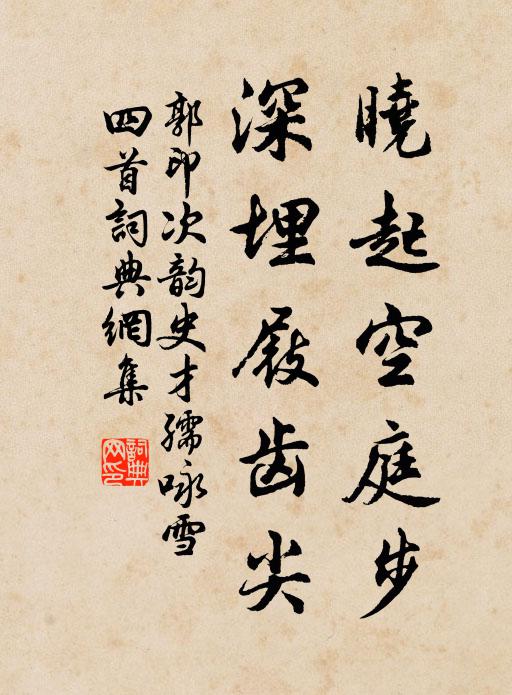 曉起空庭步
深埋屐齒尖
郭印次韵史才孺咏雪
四首詞典網集
詞典网印